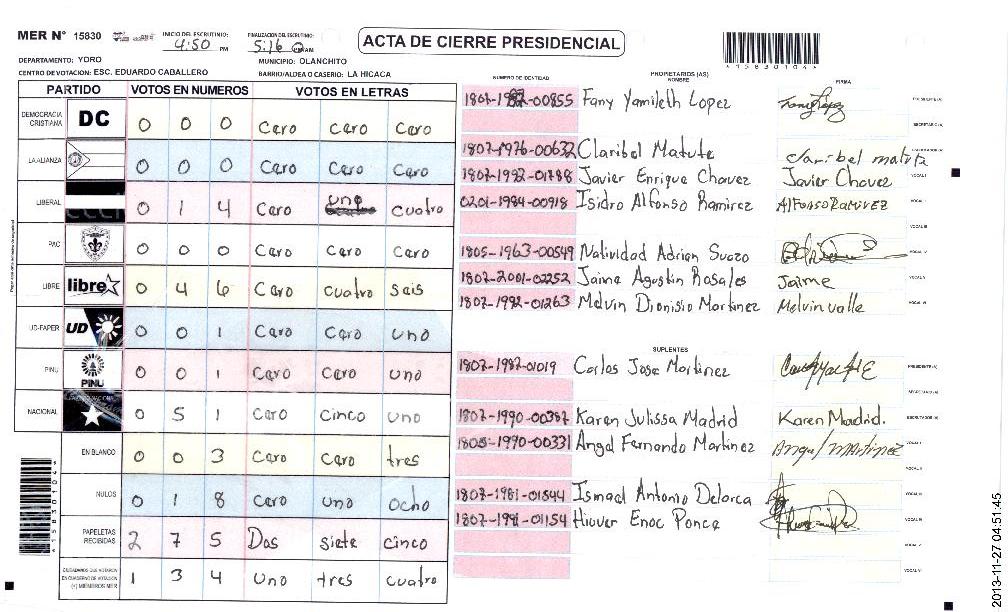 MER N° 15830
INICIO DEL ESCRUTINIO: 4:50 PM
FINALIZACION DEL ESCRUTINIO: 5:16 AM
ACTA DE CIERRE PRESIDENCIAL
*15830104*
DEPARTAMENTO: YORO
MUNICIPIO: OLANCHITO
CENTRO DE VOTACION: ESC. EDUARDO CABALLERO
BARRIO/ALDEA O CASERIO: LA HICACA
PARTIDO VOTOS EN NUMEROS VOTOS EN LETRAS
DEMOCRACIA CRISTIANA DC 0 0 0 Cero cero cero
LA ALIANZA 0 0 0 Cero Cero Cero
LIBERAL 0 1 4 Cero uno cuatro
PAC 0 0 0 Cero Cero Cero
LIBRE libre 0 4 6 Cero cuatro seis
UD-FAPER UD 0 0 1 Cero Cero uno
PINU PINU 0 0 1 Cero Cero uno
NACIONAL 0 5 1 Cero cinco uno
EN BLANCO 0 0 3 Cero Cero tres
NULOS 0 1 8 Cero uno ocho
PAPELETAS RECIBIDAS 2 7 5 Dos siete cinco
CIUDADANOS QUE VOTARON EN CUADERNO DE VOTACION (+) MIEMBROS MER 1 3 4 Uno tres cuatro
*15830104*
NUMERO DE IDENTIDAD
PROPIETARIOS (AS)
NOMBRE
FIRMA
Fany Yamileth Lopez PRESIDENTE (A)
SECRETARIO (A)
1807-1976-00632 Claribel Matute claribel matute ESCRUTADOR (A)
1807-1992-01788 Javier Enrique Chavez Javier Chavez VOCAL I
0201-1984-00918 Isidro Alfonso Ramirez Alfonso Ramirez VOCAL II
VOCAL III
1805-1963-00549 Natividad Adrian Suazo VOCAL IV
1807-2001-02252 Jaime Agustin Rosales Jaime VOCAL V
1807-1992-01263 Melvin Dionisio Martinez Melvin valle VOCAL VI
SUPLENTES
1807-1987-01019 Carlos Jose Martinez PRESIDENTE (A)
SECRETARIO (A)
1807-1990-00387 Karen Julissa Madrid Karen Madrid. ESCRUTADOR (A)
1805-1990-00331 Angel Fernando Martinez Angel Martinez VOCAL I
VOCAL II
1807-1981-01544 Ismael Antonio Delorca VOCAL III
1807-1991-01154 Hiover Enoc Ponce VOCAL IV
VOCAL V
VOCAL VI
2013-11-27 04:51:45